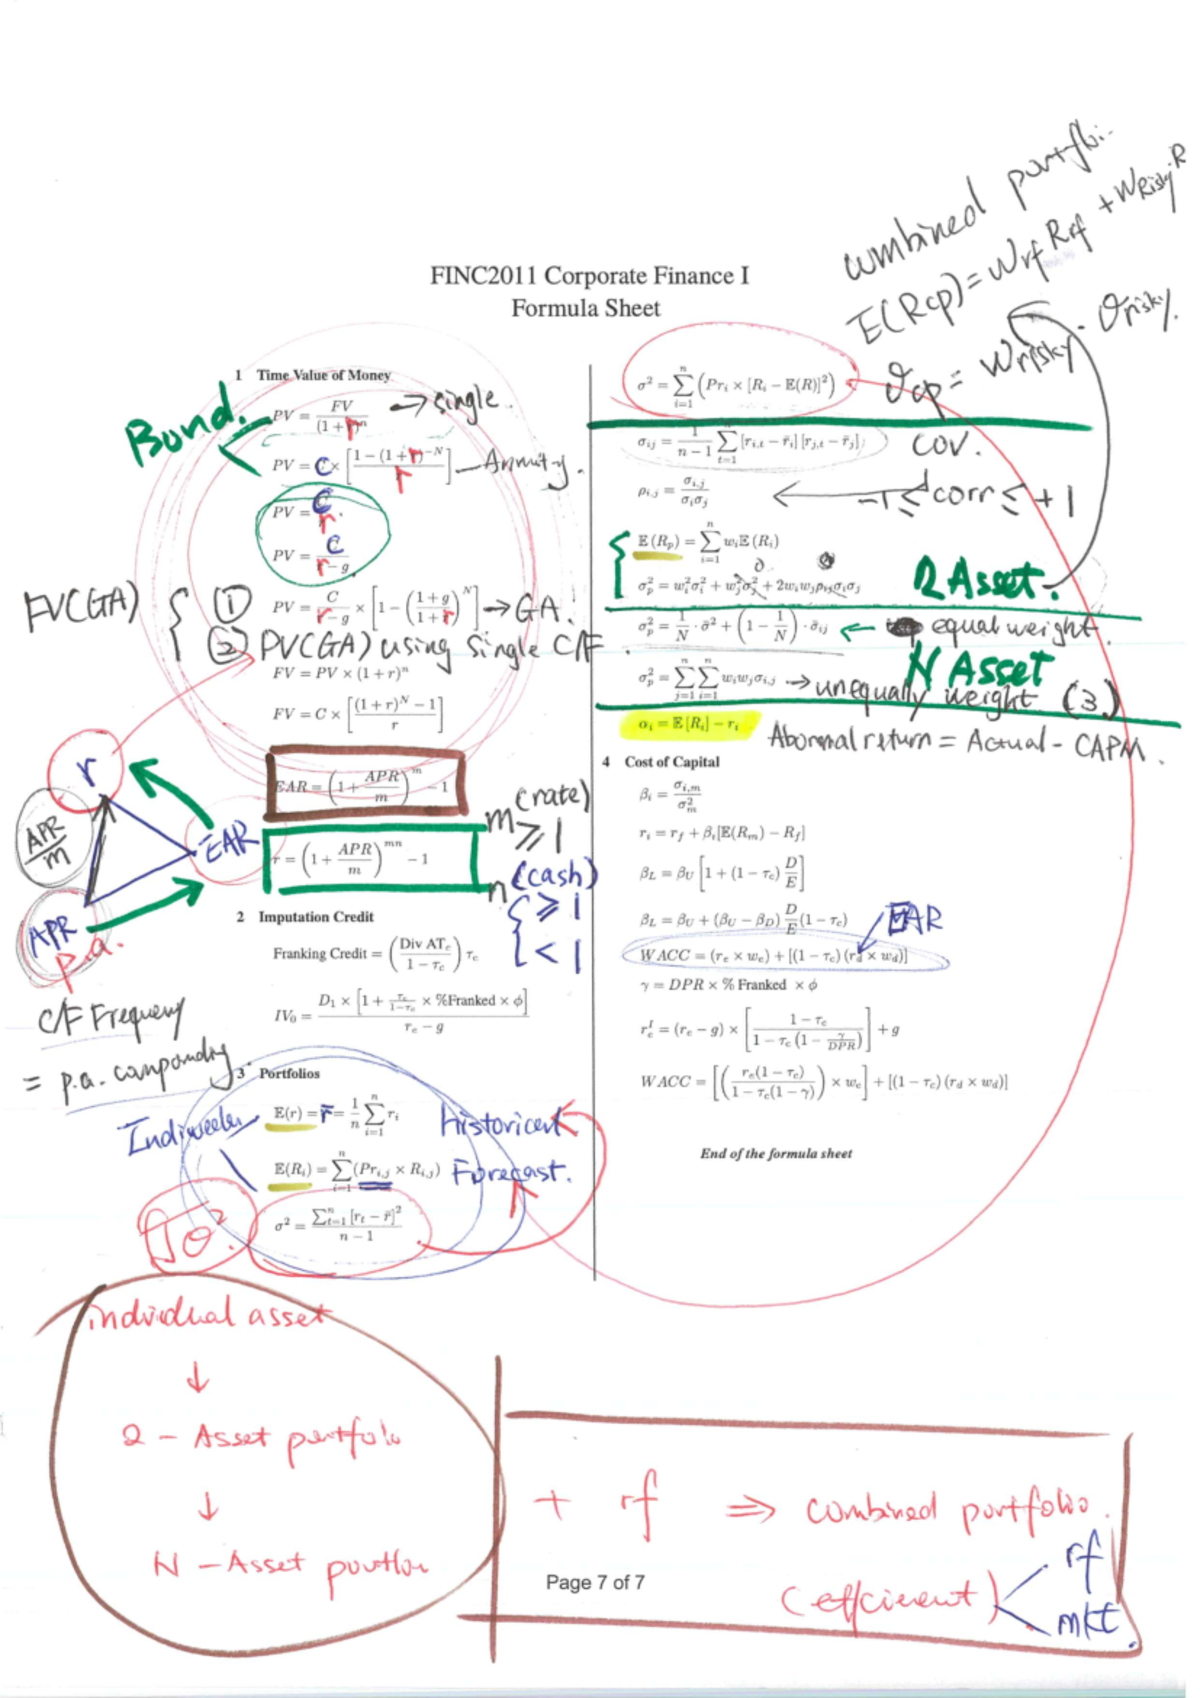 combined portfoli
E(Rcp) = Wrf Rrf + WRisky R
σcp = Wrisky · σrisky.
FINC2011 Corporate Finance I
Formula Sheet
1 Time Value of Money
Bond.
PV = FV / (1 + r)^n → single.
PV = C × [1 − (1 + r)^−N / r] — Annuity.
PV = C / r
PV = C / r − g
FV(GA) { ①
PV = C / r − g × [1 − ((1 + g) / (1 + r))^N] → GA.
② PV(GA) using single C/F.
FV = PV × (1 + r)^n
FV = C × [(1 + r)^N − 1 / r]
EAR = (1 + APR / m)^m − 1
r = (1 + APR / m)^mn − 1
m (rate)
≥ 1
n (cash)
{ ≥ 1
< 1
r
APR / m
EAR
APR
p.a.
C/F Frequency
= p.a. compounding
2 Imputation Credit
Franking Credit = (Div AT_c / 1 − τ_c) τ_c
IV_0 = D_1 × [1 + τ_c / 1−τ_c × %Franked × ϕ] / r_e − g
3 Portfolios
E(r) = r̄ = 1/n ∑_{i=1}^n r_i Historical
E(R_i) = ∑_{i=1}^n (Pr_{i,j} × R_{i,j}) Forecast.
σ² = ∑_{t=1}^n [r_t − r̄]² / n − 1
√σ².
σ² = ∑_{i=1}^n (Pr_i × [R_i − E(R)]²)
σ_ij = 1 / n − 1 ∑_{t=1}^n [r_{i,t} − r̄_i] [r_{j,t} − r̄_j] COV.
ρ_{i,j} = σ_{i,j} / σ_iσ_j ← −1 ≤ corr ≤ +1
E(R_p) = ∑_{i=1}^n w_iE(R_i)
σ_p² = w_i²σ_i² + w_j²σ_j² + 2w_iw_jρ_ijσ_iσ_j 2 Asset.
σ_p² = 1/N · σ̄² + (1 − 1/N) · σ̄_ij ← equal weight.
N Asset
σ_p² = ∑_{j=1}^n ∑_{i=1}^n w_iw_jσ_{i,j} → unequally weight (3)
α_i = E[R_i] − r_i
Abnormal return = Actual − CAPM.
4 Cost of Capital
β_i = σ_{i,m} / σ_m²
r_i = r_f + β_i[E(R_m) − R_f]
β_L = β_U [1 + (1 − τ_c) D/E]
β_L = β_U + (β_U − β_D) D/E (1 − τ_c)
EAR
WACC = (r_e × w_e) + [(1 − τ_c) (r_d × w_d)]
γ = DPR × % Franked × ϕ
r_e^I = (r_e − g) × [1 − τ_c / 1 − τ_c (1 − γ/DPR)] + g
WACC = [(r_e(1 − τ_c) / 1 − τ_c(1 − γ)) × w_e] + [(1 − τ_c) (r_d × w_d)]
End of the formula sheet
individual asset
↓
2 – Asset portfolo
↓
N – Asset
+ rf ⇒ combined portfolio.
(efficient)
rf
mkt.
Page 7 of 7